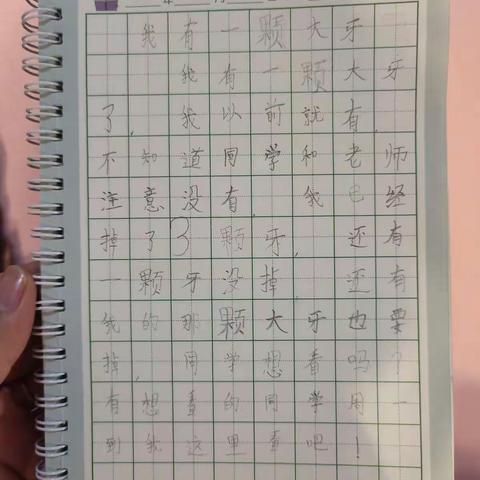 我有一颗大牙
我有一颗大牙
了,我以前就有,
不知道同学和老师
注意没有,我已经
掉了3颗牙,还有
一颗牙没掉,还有
我的那颗大牙也要
掉,同学想看吗?
有想看的同学用一
到我这里看吧!